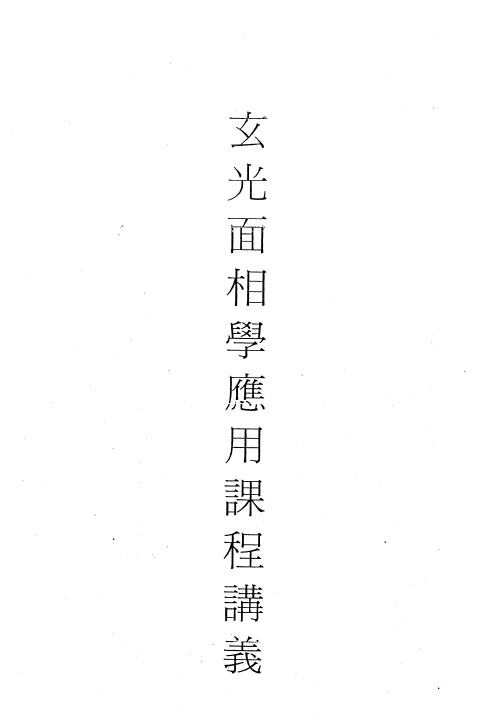 玄光面相學應用課程講義